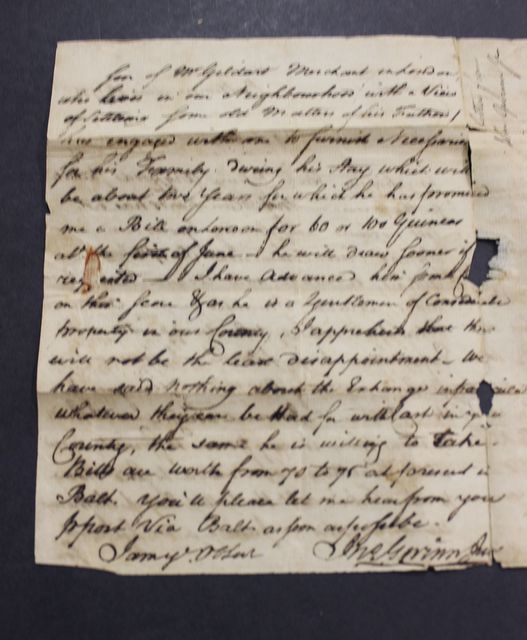 Son of Mr. Gildart Merchant in London
who lives in our Neighbourhood with a View
of Settleing some old Matters of his Fathers,
has engaged with me to furnish Necessaries
for his Family during his Stay which will
be about two Years for which he has promised
me a Bill on London for 60 or 100 Guineas
at the first of June he will draw sooner if
requested I have advanced him some
on this Score & as he is a Gentleman of Considerable
property in our County, I apprehend that there
will not be the least disappointment We
have said nothing about the Exchange
whatever they can be had for with Cash in your
County, the same he is willing to take
Bills are worth from 70 to 75 at present in
Balt. You'll please let me hear from you
pr post Via Balt as soon as possible.
I am yr Obt